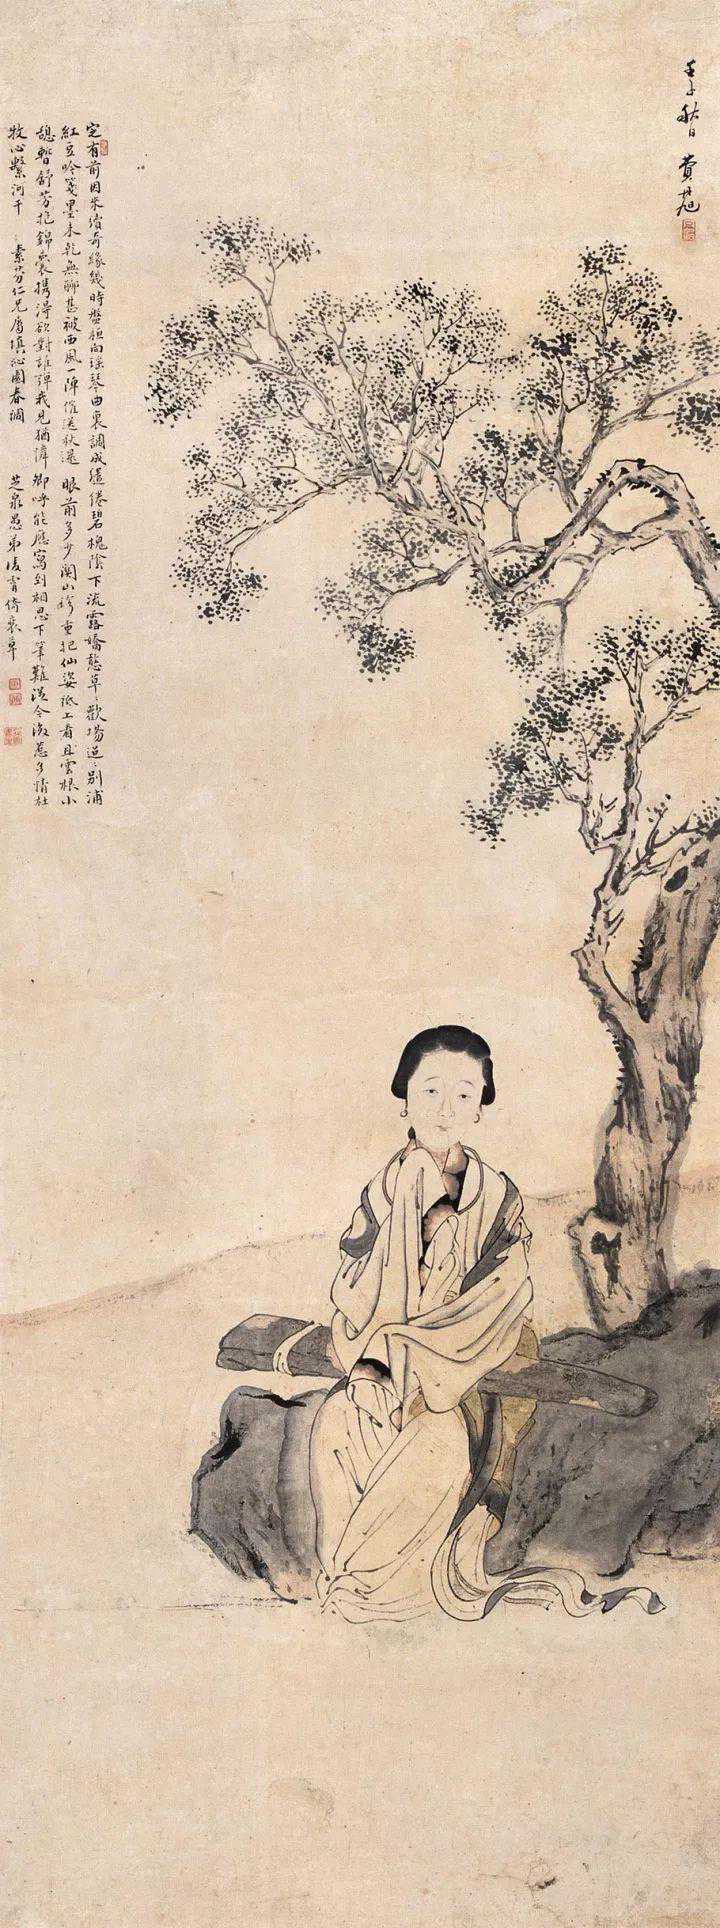 壬午秋日 費丹旭
定有前因未續奇緣幾時盤桓向瑤琴曲裏調成繾綣碧槐陰下流露嬌憨草〻歡場迢〻別浦
紅豆吟箋墨未乾無聊甚被西風一陣催送秋還 眼前多少關山珍重把仙姿紙上看且雲根小
憩暫舒芳抱錦囊携得欲對誰彈我見猶憐卿呼能應寫到相思下筆難從今後惹多情杜
牧心繫河干 素芬仁兄屬填沁園春調 芝泉愚弟凌霄倚裝草